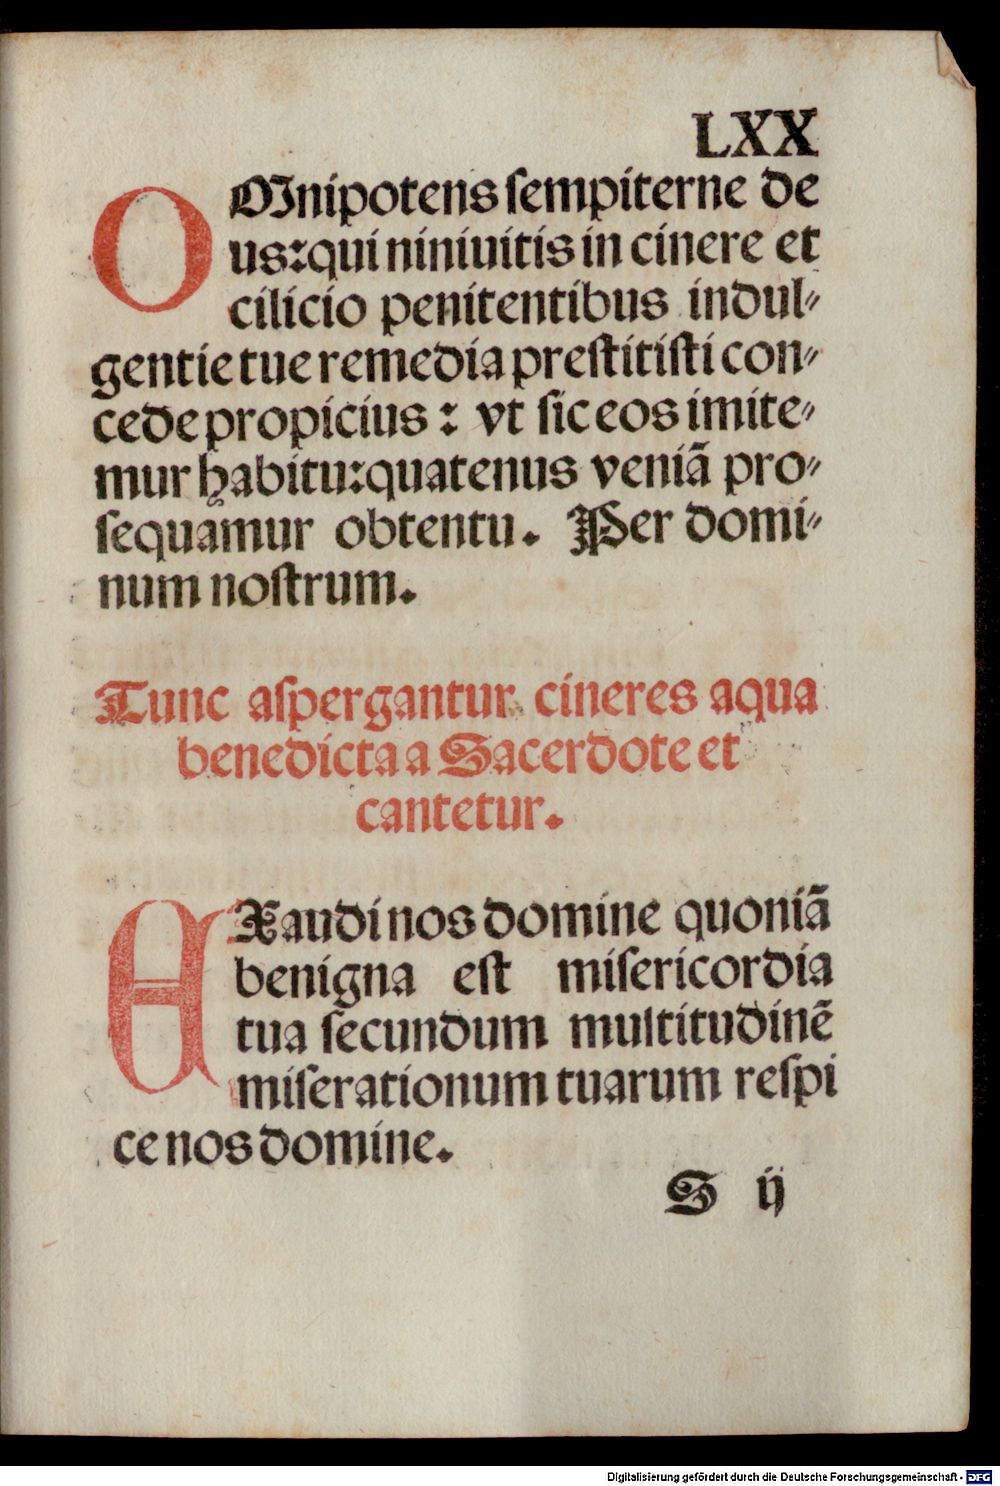 LXX
OMnipotens sempiterne de
us:qui niniuitis in cinere et
cilicio penitentibus indul⸗
gentie tue remedia prestitisti con⸗
cede propicius : vt sic eos imite⸗
mur habitu:quatenus veniā pro⸗
sequamur obtentu. Per domi⸗
num nostrum.
Tunc aspergantur cineres aqua
benedicta a Sacerdote et
cantetur.
EXaudi nos domine quoniā
benigna est misericordia
tua secundum multitudinē
miserationum tuarum respi
ce nos domine.
S ij
Digitalisierung gefördert durch die Deutsche Forschungsgemeinschaft - DFG